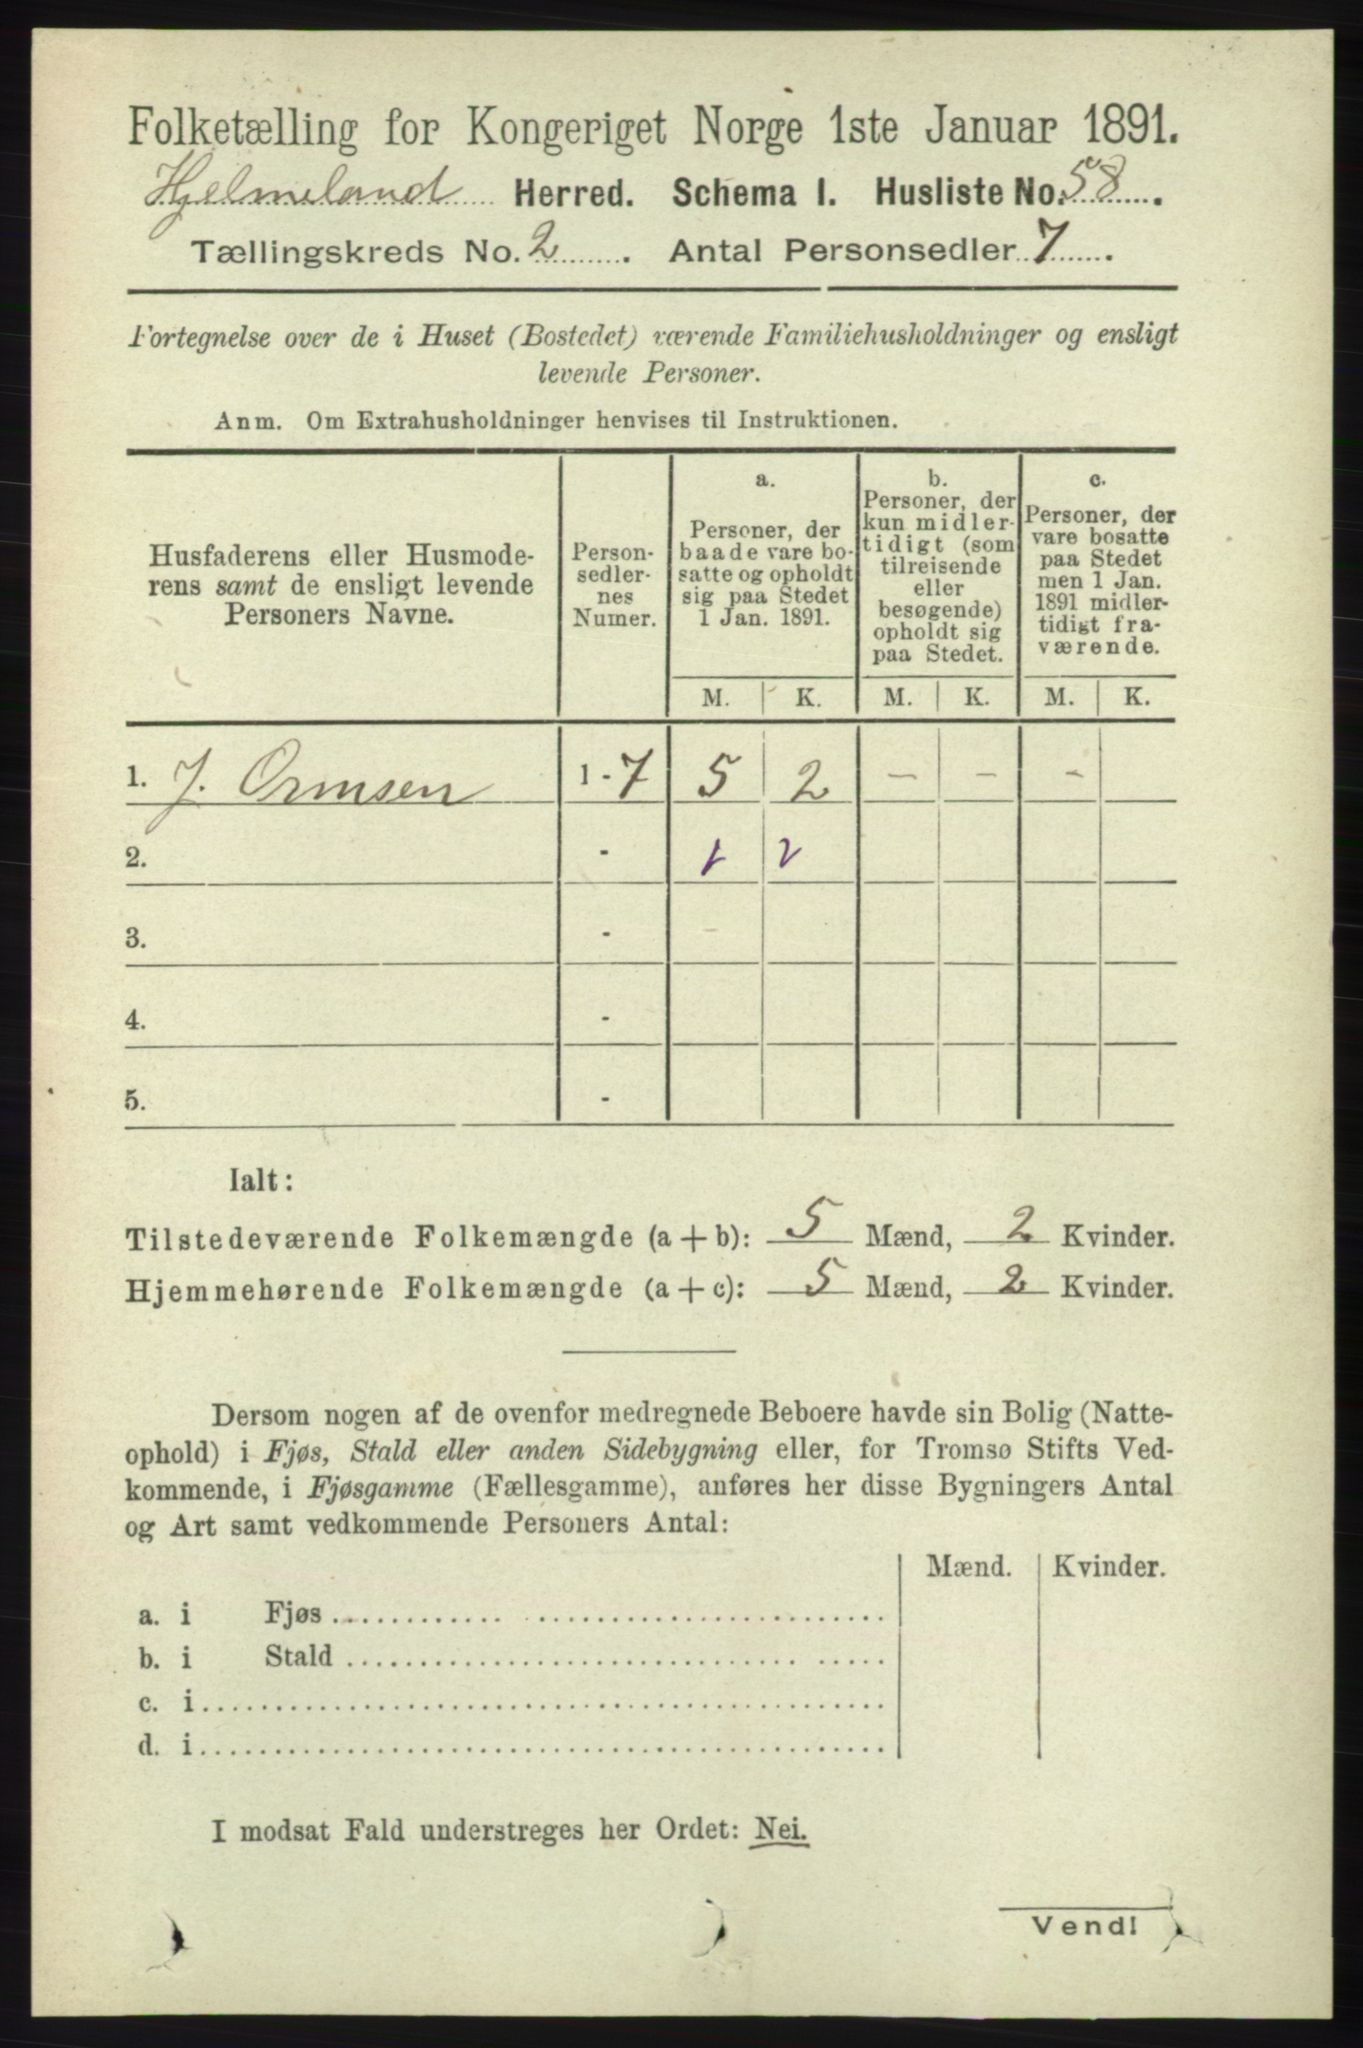 Folketælling for Kongeriget Norge 1ste Januar 1891.
Hjelmeland Herred. Schema I. Husliste No. 58.
Tællingskreds No. 2. Antal Personsedler 7.
Fortegnelse over de i Huset (Bostedet) værende Familiehusholdninger og ensligt
levende Personer.
Anm. Om Extrahusholdninger henvises til Instruktionen.
Husfaderens eller Husmode-
rens samt de ensligt levende
Personers Navne.
Person-
sedler-
nes
Numer.
a.
Personer, der
baade vare bo-
satte og opholdt
sig paa Stedet
1 Jan. 1891.
b.
Personer, der
kun midler-
tidigt (som
tilreisende
eller
besøgende)
opholdt sig
paa Stedet.
c.
Personer, der
vare bosatte
paa Stedet
men 1 Jan.
1891 midler-
tidigt fra-
værende.
M. K. M. K. M. K.
1. J. Ormsen 1 - 7 5 2 - - -
2. -
3. -
4. -
5. -
Ialt:
Tilstedeværende Folkemængde (a + b): 5 Mænd, 2 Kvinder.
Hjemmehørende Folkemængde (a + c): 5 Mænd, 2 Kvinder.
Dersom nogen af de ovenfor medregnede Beboere havde sin Bolig (Natte-
ophold) i Fjøs, Stald eller anden Sidebygning eller, for Tromsø Stifts Ved-
kommende, i Fjøsgamme (Fællesgamme), anføres her disse Bygningers Antal
og Art samt vedkommende Personers Antal:
Mænd. Kvinder.
a. i Fjøs
b. i Stald
c. i
d. i
I modsat Fald understreges her Ordet: Nei.
Vend!